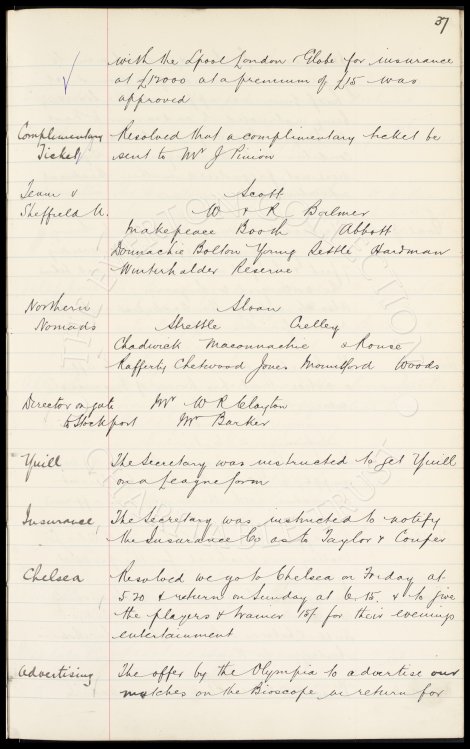 37
with the Lpool London & Globe for insurance
at £12000 at a premium of £15 was
approved
Complimentary Resolved that a complimentary ticket be
Ticket sent to Mr J Pinion
Team v Scott
Sheffield U. W & R Balmer
Makepeace Booth Abbott
Donnachie Bolton Young Settle Hardman
Winterhalder Reserve
Northern Sloan
Nomads Strettle Crelley
Chadwick Maconnachie & Rouse
Rafferty Chetwood Jones Mountford Woods
Director on gate Mr W R Clayton
to Stockport Mr Barker
Yuill The Secretary was instructed to get Yuill
on a League form
Insurance The Secretary was instructed to notify
the Insurance Co as to Taylor & Couper
Chelsea Resolved we go to Chelsea on Friday at
5.20 & return on Sunday at 6.15 & to give
the players & trainer 15/- for their evenings
entertainment
Advertising The offer by the Olympia to advertise our
matches on the Bioscope in return for